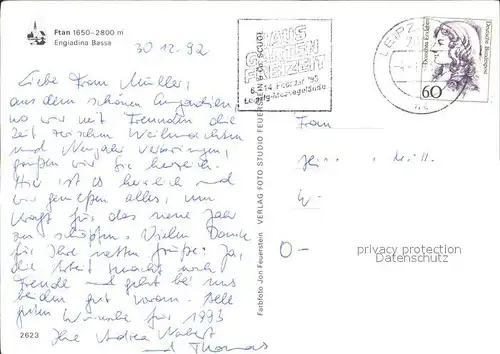 Ftan 1650–2800 m
Engiadina Bassa
30.12.92
Liebe Frau Müller,
aus dem schönen Engadin,
wo wir mit Freunden die
Zeit zwischen Weihnachten
und Neujahr verbringen,
grüßen wir Sie herzlich.
Hier ist es herrlich und
wir genießen alles, um
Kraft für das neue Jahr
zu schöpfen. Vielen Dank
für Ihre netten Grüße. Ja,
die Arbeit macht noch
Freude und geht bei uns
beiden gut voran. Alle
guten Wünsche für 1993
Ihre Andrea
und Thomas
2623
Farbfoto Jon Feuerstein
VERLAG FOTO STUDIO FEUERSTEIN SCUOL
HAUS
GARTEN
FREIZEIT
6.-14. Februar '93
Leipzig-Messegelände
LEIPZIG
Deutsche Bundespost
60
Frau
W-
O-
Rechtlicher Hinweis:
physisches Eigentum
Datenschutz